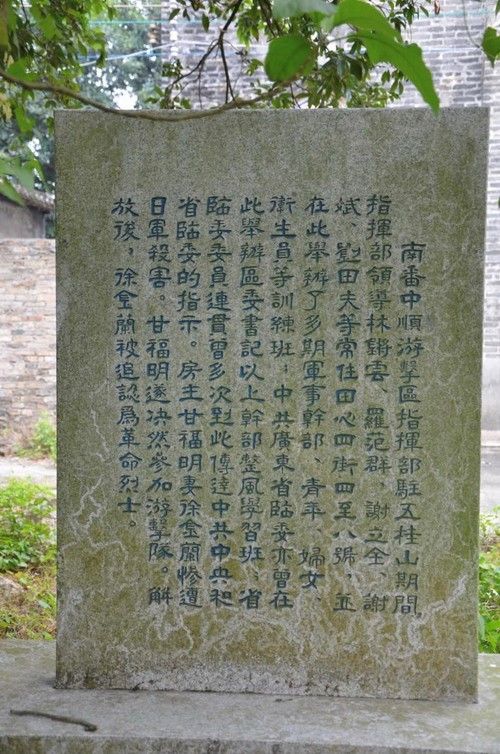 南番中順游擊區指揮部駐五桂山期間，
指揮部領導林鏘雲、羅范群、謝立全、謝
斌、劉田夫等常住田心四街四至八號，並
在此舉辦了多期軍事幹部、青年、婦女、
衛生員等訓練班；中共廣東省臨委亦曾在
此舉辦區委書記以上幹部整風學習班；省
臨委委員連貫曾多次到此傳達中共中央和
省臨委的指示。房主甘福明妻徐金蘭慘遭
日軍殺害。甘福明遂決然參加游擊隊。解
放後，徐金蘭被追認爲革命烈士。